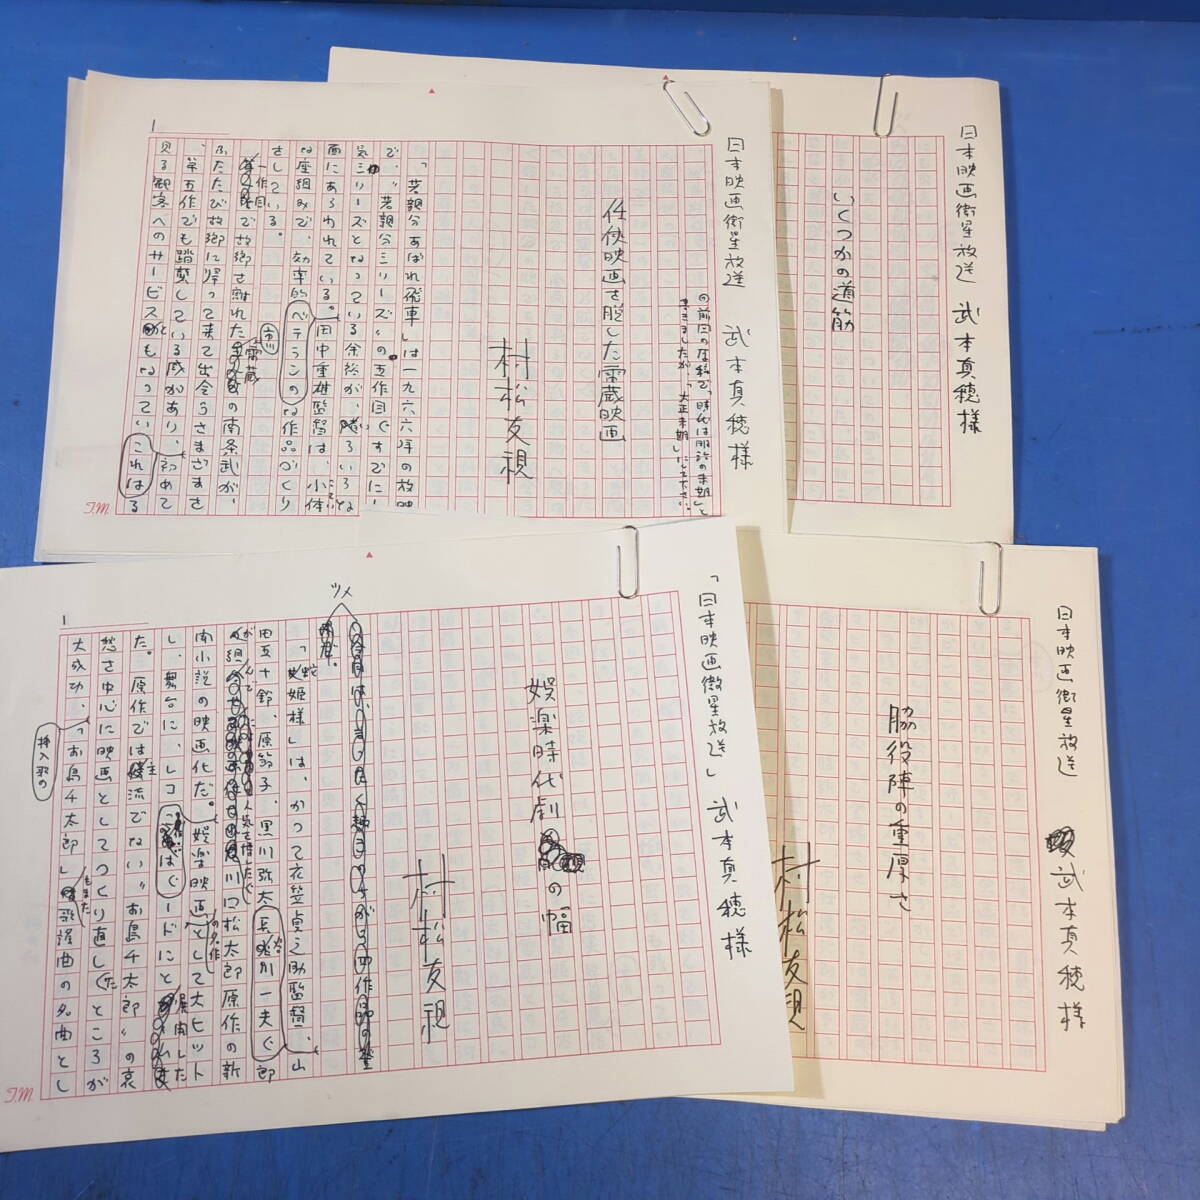 日本映画衛星放送 武本真穂様
いくつかの道筋
日本映画衛星放送 武本真穂様
の前回の原稿で「時代は明治の末期」と
書きましたが、「大正末期」にして下さい。
任侠映画を脱した雷蔵映画
村松友視
「若親分あばれ飛車」は一九六六年の放映
で、〝若親分シリーズ〟の五作目。すでに人
気シリーズとなっている余裕が、いろいろな
面にあらわれている。田中重雄監督は、小体
な座組みで、効率的な作品づくり
ベテランの
をしている。
一作目で故郷を離れた
市川雷蔵
の南条武が、
ふたたび故郷に帰って来て出会うさまざまさ
、第五作でも踏襲している感があり、初めて
見る観客へのサービスともなっている
これは
1
T.M.
日本映画衛星放送 武本真穂様
脇役陣の重厚さ
村松友視
「日本映画衛星放送」 武本真穂様
娯楽時代劇の幅
村松友視
ツメ
「蛇姫様」は、かつて衣笠貞之助監督、山
田五十鈴、原節子、黒川弥太郎
長谷川一夫
川口松太郎原作の新
人気を博した
南小説の映画化だ。娯楽映画として大ヒット
の名作
し、舞台に、レコードにと
展開した
た。原作では主流でない〝お島千太郎〟の哀
愁を中心に映画としてつくり直したところが
大成功、「お島千太郎」
もまた
歌謡曲の名曲とし
挿入歌の
1
T.M.